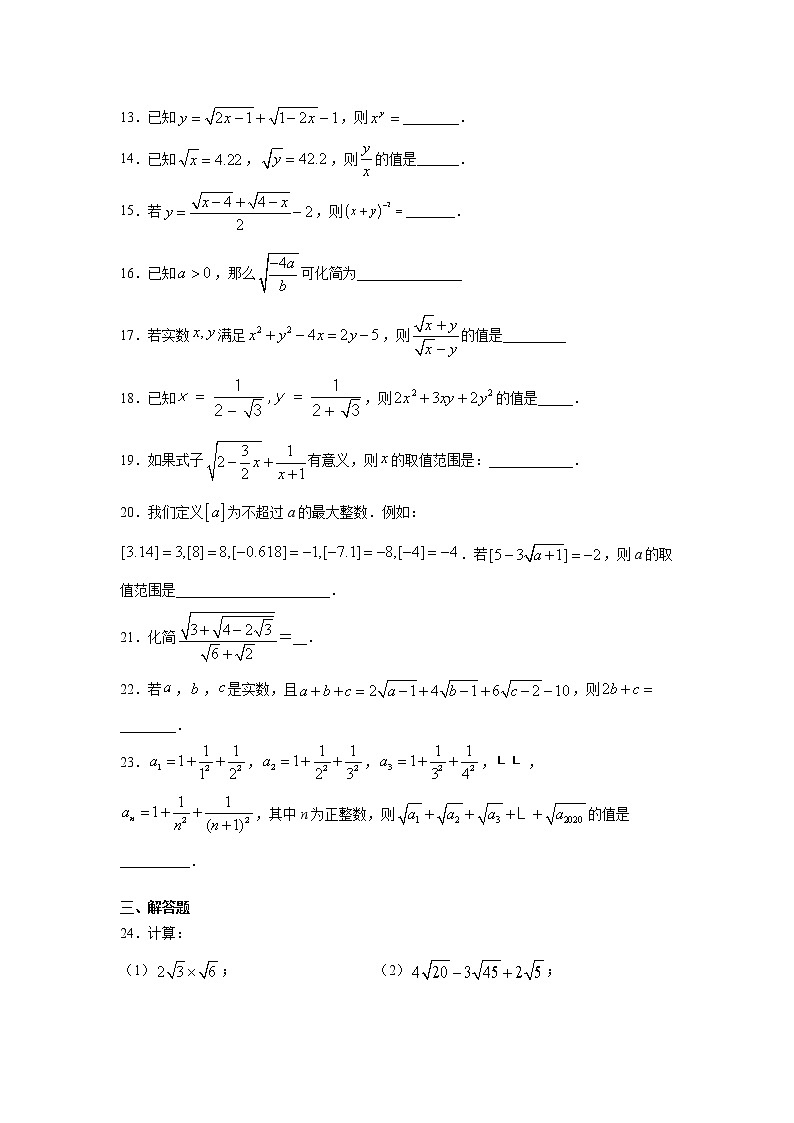 13．已知y=√(2x−1)+√(1−2x)−1，则x^y=________．
14．已知√x=4.22，√y=42.2，则y/x的值是______．
15．若y=(√(x−4)+√(4−x))/2−2，则(x+y)^(−2)=_______．
16．已知a>0，那么√(−4a/b)可化简为_______________
17．若实数x,y满足x²+y²−4x=2y−5，则(√x+y)/(√x−y)的值是_________
18．已知x=1/(2−√3),y=1/(2+√3)，则2x²+3xy+2y²的值是_____．
19．如果式子√(2−(3/2)x)+1/(x+1)有意义，则x的取值范围是：____________．
20．我们定义[a]为不超过a的最大整数．例如：
[3.14]=3,[8]=8,[−0.618]=−1,[−7.1]=−8,[−4]=−4．若[5−3√(a+1)]=−2，则a的取
值范围是______________________．
21．化简√(3+√(4−2√3))/(√6+√2)＝__．
22．若a，b，c是实数，且a+b+c=2√(a−1)+4√(b−1)+6√(c−2)−10，则2b+c=
________．
23．a₁=1+1/1²+1/2²，a₂=1+1/2²+1/3²，a₃=1+1/3²+1/4²，L L，
aₙ=1+1/n²+1/(n+1)²，其中n为正整数，则√a₁+√a₂+√a₃+L+√a₂₀₂₀的值是
__________．
三、解答题
24．计算：
（1）2√3×√6； （2）4√20−3√45+2√5；